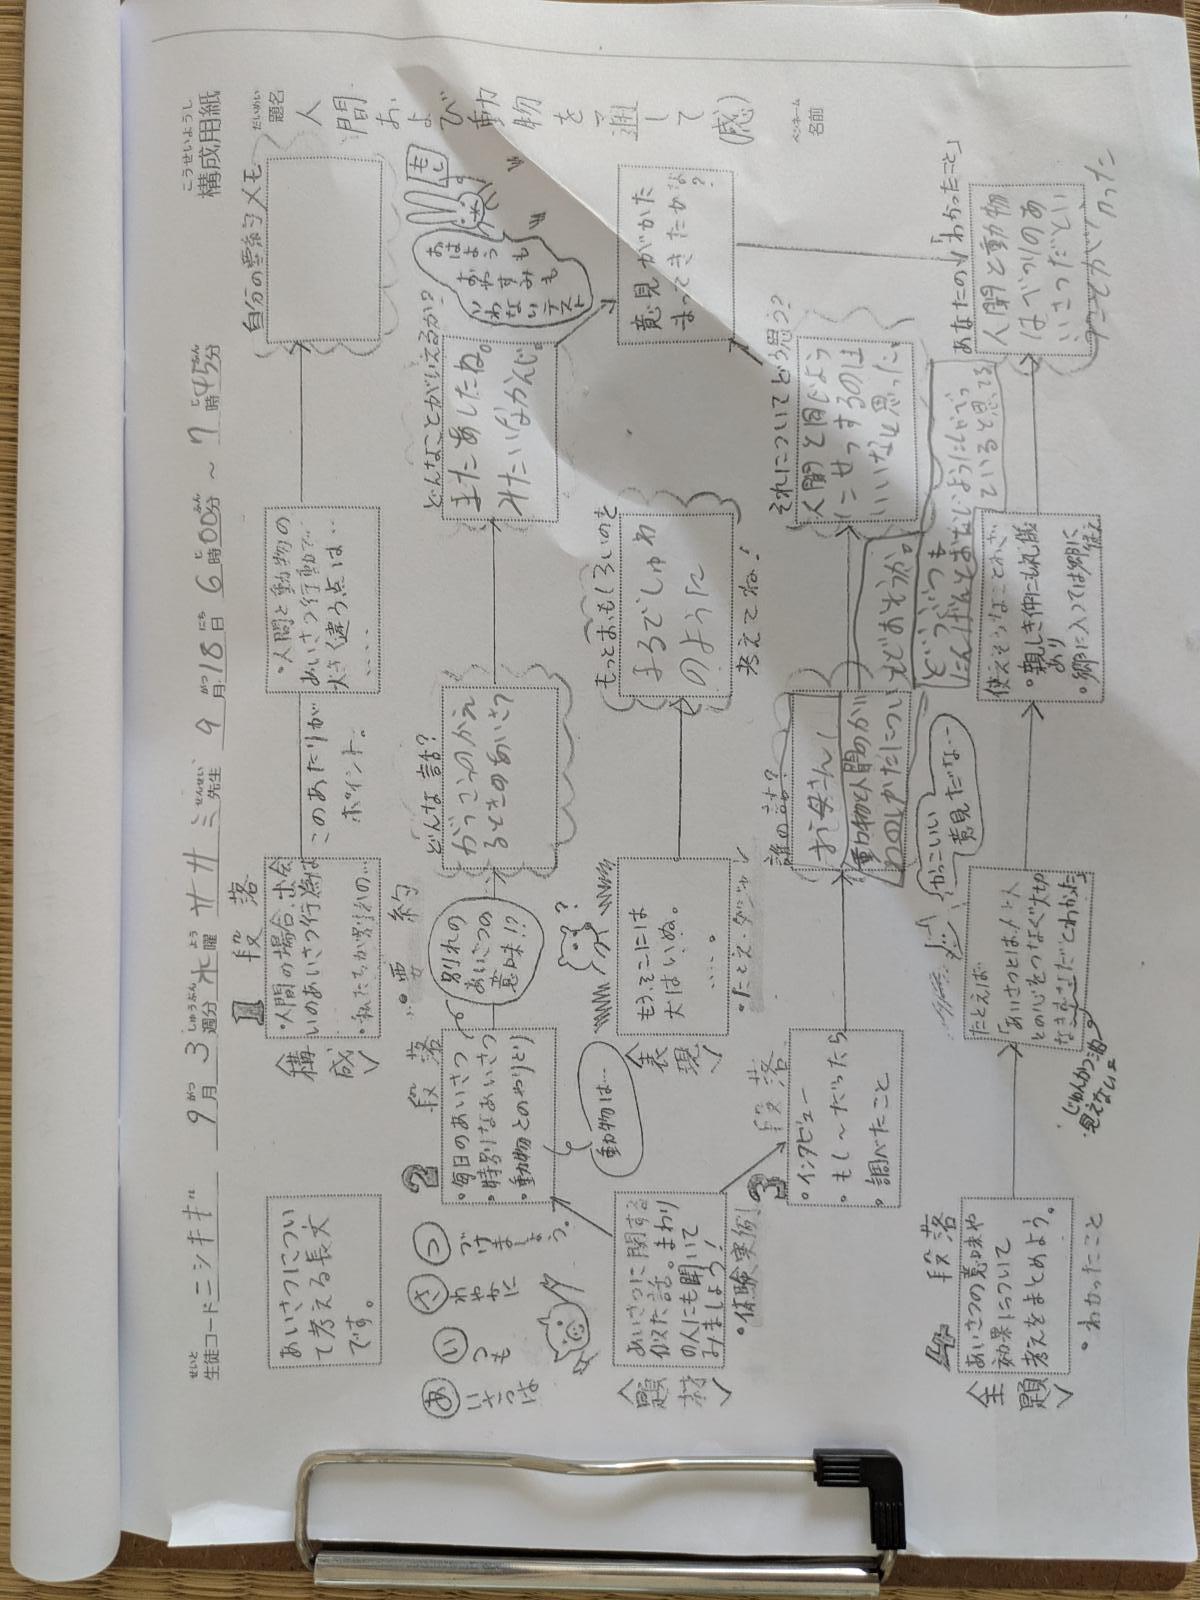 こうせいようし
構成用紙
せいと
生徒コード ニシキギ 9月 3週分 水曜 ササミ先生 9月18日 6時00分 ～ 7時45分
だいめい
題名
人間および動物を通して(感)
ペンネーム
名前
あいさつについ
て考える長文
です。
1段落
〈構成〉
・人間の場合、出会
いのあいさつ行為は
・私たちが別れの…
このあたりが
ポイント。
・人間と動物の
あいさつ行動で
大きく違う点は
・・・・
自分の要約メモ
・要約
あいさつは
いつも
さわやかに
つづけましょう。
2段落
・毎日のあいさつ
・特別なあいさつ
・動物とのやりとり
別れの
あいさつの
意味!?
どんな話?
がっこうのかえ
るときのあいさつ
どんなことがいえるか?
またあしたね。
みたいなかんじ。
おはようも
おやすみも
いわない
テスト
動物は…
〈題材〉
あいさつに関する
似た話。まわり
の人にも聞いて
みましょう!
・体験実例
〈表現〉
もうそこには
犬はいぬ。
・・・・。
・たとえ・ダジャレ
もっとおもしろいのを
まるでしゅわ
のように
考えてね!
意見がかた
まってきたかな?
3段落
・インタビュー
・もし～だったら
・調べたこと
誰の話?
お母さん!
動物と人間のかい
わのしかたについ
てどおもうか。
どうぶつも
にんげんとおなじようにしべつ
ていると思てる
それについてどう思う?
人間と同じよう
にせっするのは
いいなと思った。
かっこいい
意見だな…
4段落
〈主題〉
あいさつの意味や
効果について
考えをまとめよう。
・わかったこと
たとえば
「あいさつとは、人と人
との心をつなぐ大切
なきずなだとわかった」
使えそうなことわざ
・親しき仲にも礼儀
あり
・郷に入っては郷に
従え
あなたの「わかったこと」
人間と動物
はべつりのあ
いさつだとい
うことがわかった